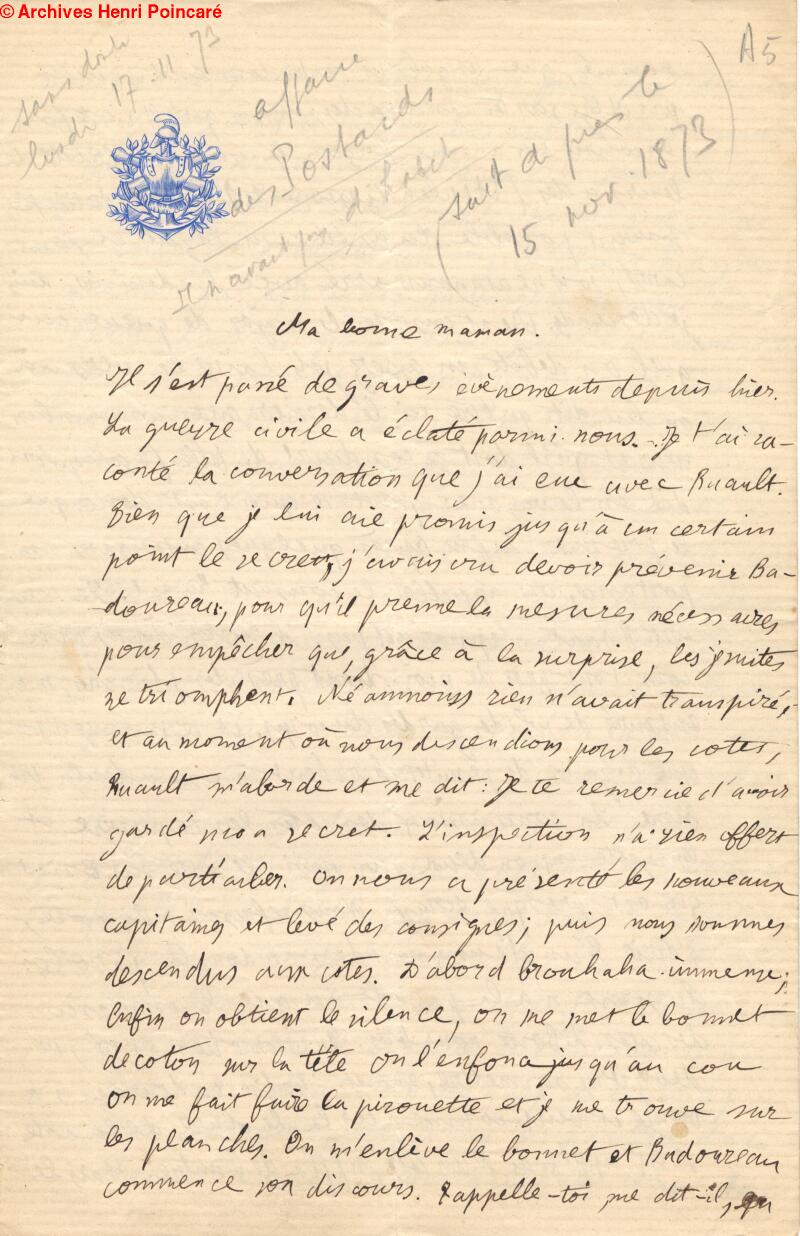 © Archives Henri Poincaré
A5
sans doute
lundi 17.11.73
affaire
des Postards
Il n'avait pas
(suit de près le
15 nov. 1873)
Ma bonne maman.
Il s'est passé de graves évènements depuis hier.
La guerre civile a éclaté parmi nous. Je t'ai ra-
conté la conversation que j'ai eue avec Ruault.
Bien que je lui aie promis jusqu'à un certain
point le secret, j'avais cru devoir prévenir Ba-
doureau, pour qu'il prenne la mesures nécessaires
pour empêcher que, grâce à la surprise, les jésuites
ne triomphent. Néanmoins rien n'avait transpiré,
et au moment où nous descendions pour les cotes,
Ruault m'aborde et me dit: Je te remercie d'avoir
gardé mon secret. L'inspection n'a rien offert
de particulier. On nous a présenté les nouveaux
capitaines et levé des consignes; puis nous sommes
descendus aux cotes. D'abord brouhaha immense;
Enfin on obtient le silence, on me met le bonnet
de coton sur la tête on l'enfonce jusqu'au cou
on me fait faire la pirouette et je me trouve sur
les planches. On m'enlève le bonnet et Badoureau
commence son discours. Rappelle-toi, me dit-il, qu